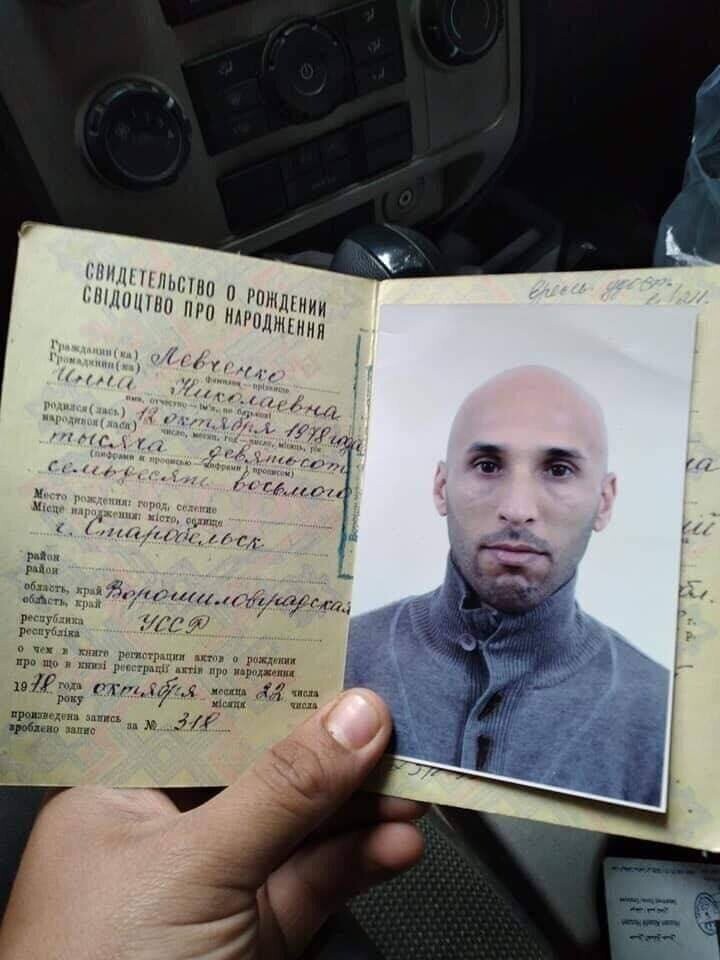 СВИДЕТЕЛЬСТВО О РОЖДЕНИИ
СВІДОЦТВО ПРО НАРОДЖЕННЯ
Гражданин(ка)
Громадянин(ка) Левченко
фамилия — прізвище
Инна Николаевна
имя, отчество — ім'я, по батькові
родился(лась)
народився(лася) 12 октября 1978 года
число, месяц, год — число, місяць, рік
тысяча девятьсот
(цифрами и прописью — цифрами і прописом)
семьдесят восьмого
Место рождения: город, селение
Місце народження: місто, селище
г. Старобельск
район
район
область, край
область, край Ворошиловградская
республика
республіка УССР
о чем в книге регистрации актов о рождении
про що в книзі реєстрації актів про народження
19 78 года октября месяца 22 числа
року місяця числа
произведена запись
зроблено запис за № 318